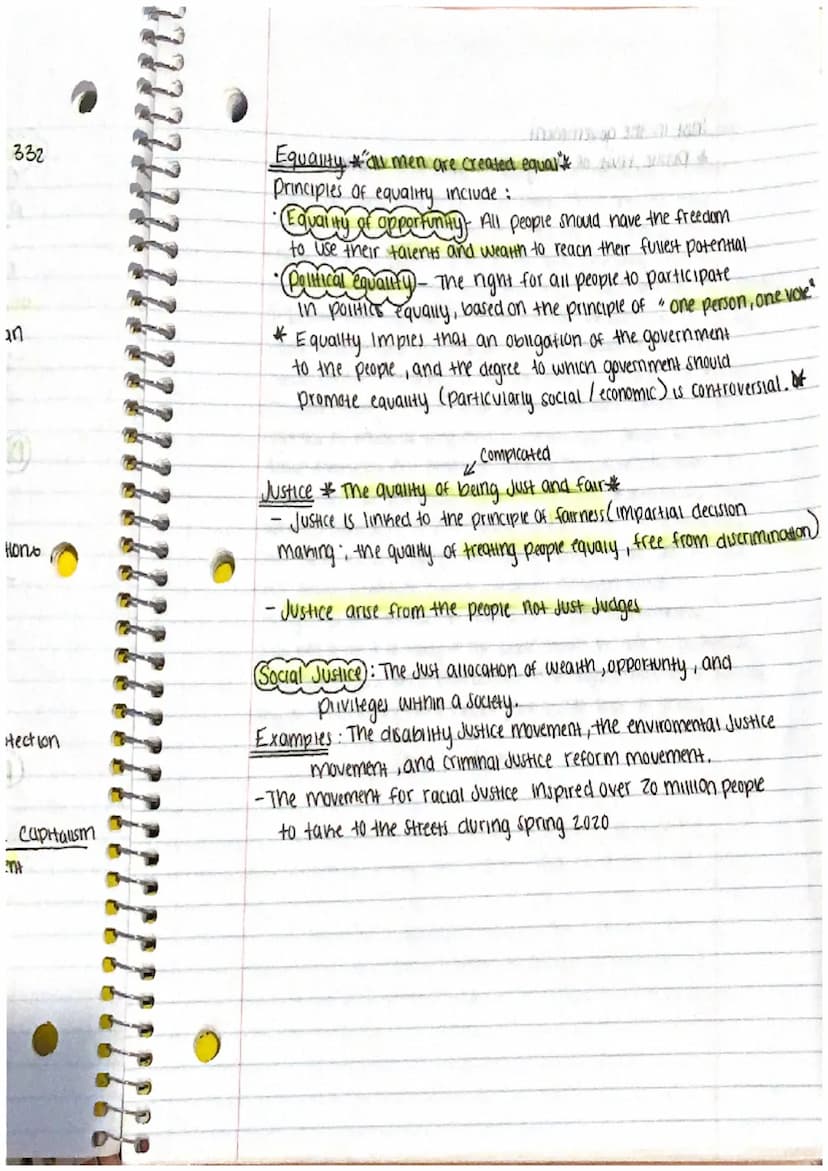 332
an
tions
tection
Capitalism
ent
Equality *"all men are created equal"*
Principles of equality include :
· Equality of opportunity - All people should have the freedom
to use their talents and wealth to reach their fullest potential
· Political equality - The right for all people to participate
in politics equally, based on the principle of "one person, one vote"
* Equality implies that an obligation of the government
to the people, and the degree to which government should
promote equality (particularly social / economic) is controversial. *
Complicated
Justice * The quality of being just and fair *
- Justice is linked to the principle of fairness (impartial decision
making ; the quality of treating people equaly, free from discrimination)
- Justice arise from the people not just judges
Social Justice : The just allocation of wealth, opportunity, and
privileges within a society.
Examples : The disability justice movement, the enviromental justice
movement, and criminal justice reform movement.
- The movement for racial justice inspired over 20 million people
to take to the streets during spring 2020